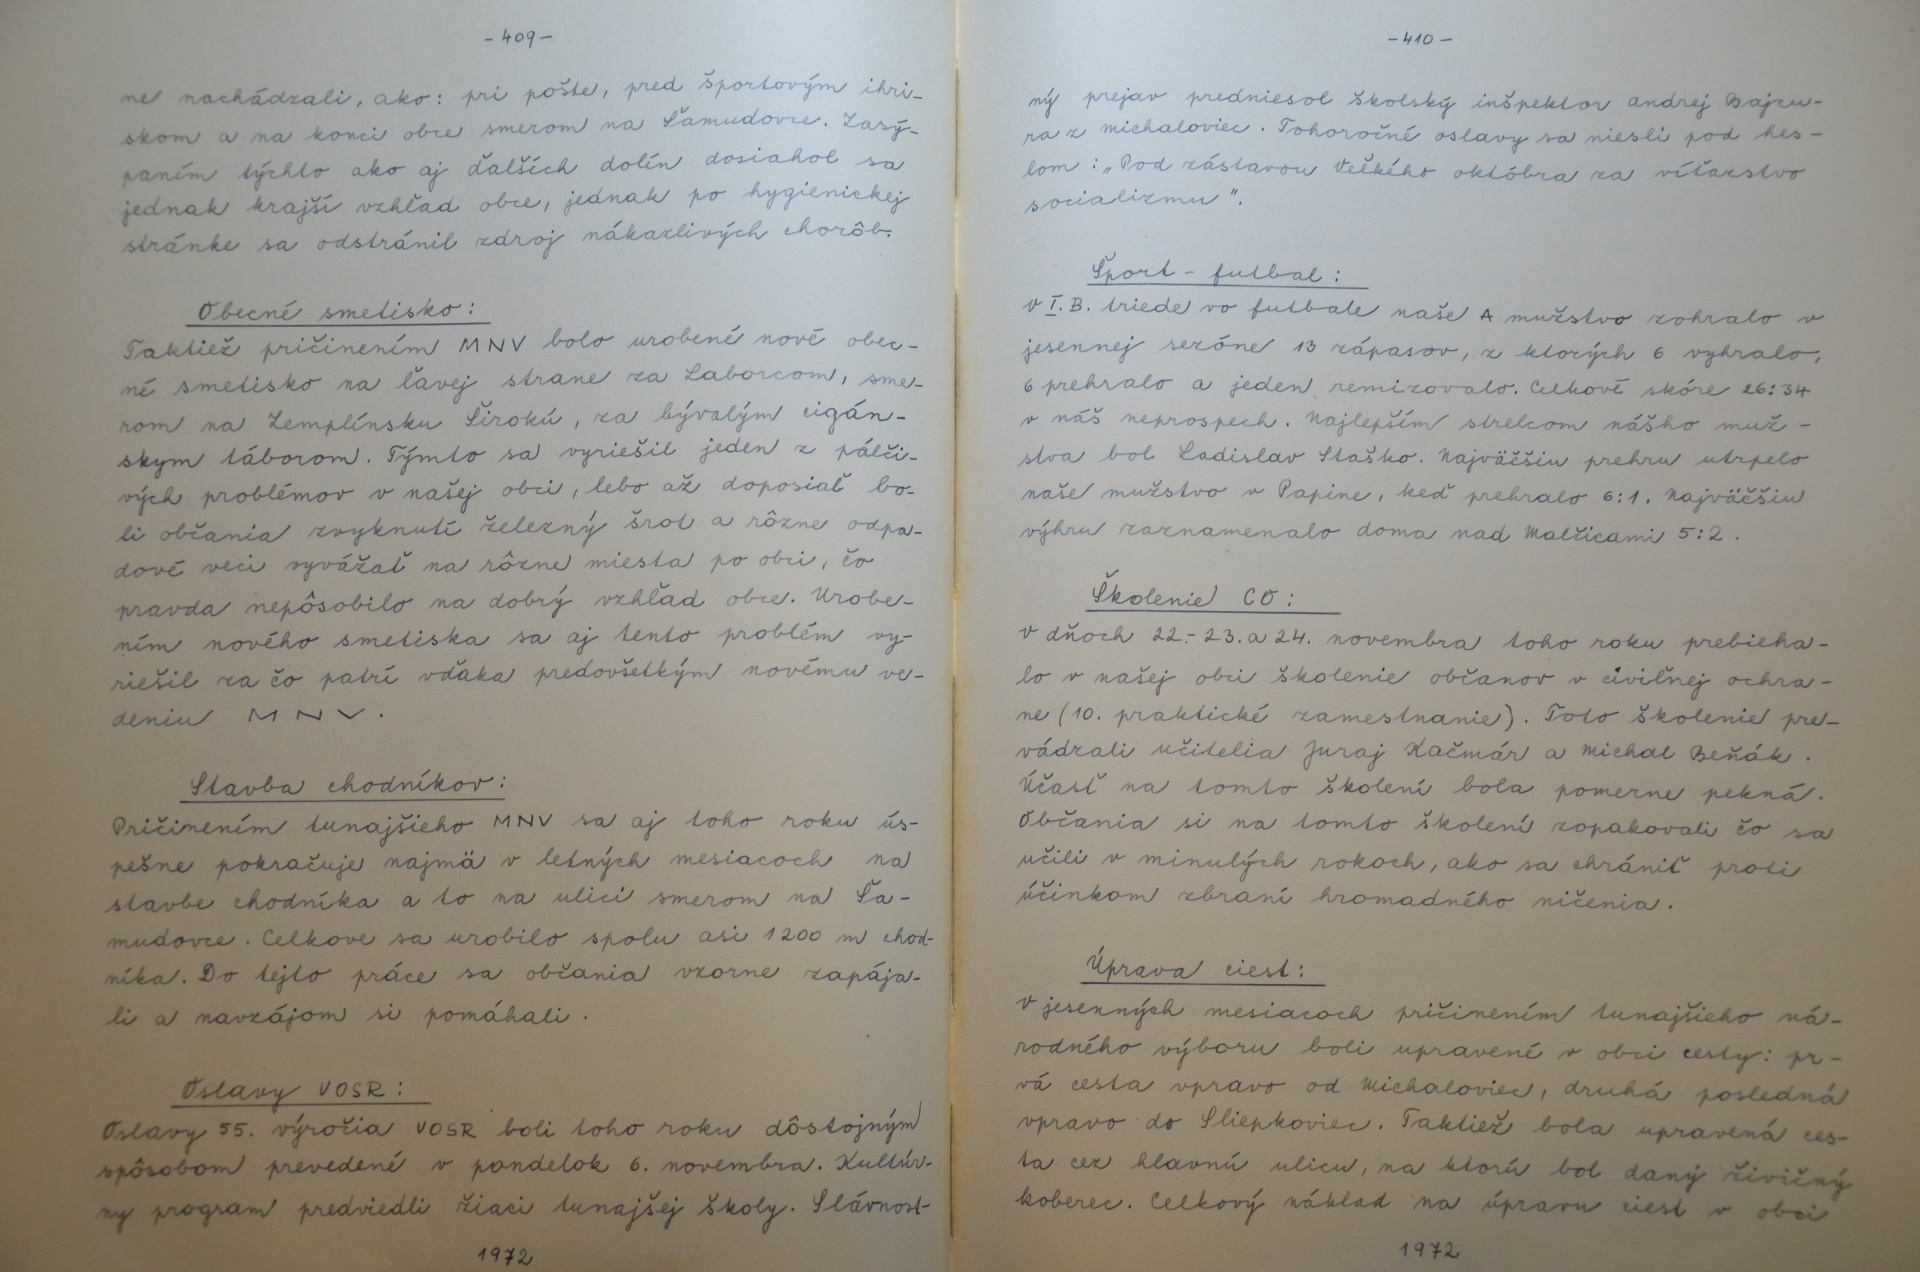 - 409 -
ne nachádzali, ako: pri pošte, pred športovým ihri-
skom a na konci obce smerom na Šamudovce. Zasý-
paním týchto ako aj ďalších dolín dosiahol sa
jednak krajší vzhľad obce, jednak po hygienickej
stránke sa odstránil zdroj nákazlivých chorôb.
Obecné smetisko:
Taktiež pričinením MNV bolo urobené nové obec-
né smetisko na ľavej strane za Laborcom, sme-
rom na Zemplínsku Širokú, za bývalým cigán-
skym táborom. Týmto sa vyriešil jeden z pálči-
vých problémov v našej obci, lebo až doposiaľ bo-
li občania zvyknutí železný šrot a rôzne odpa-
dové veci vyvážať na rôzne miesta po obci, čo
pravda nepôsobilo na dobrý vzhľad obce. Urobe-
ním nového smetiska sa aj tento problém vy-
riešil za čo patrí vďaka predovšetkým novému ve-
deniu MNV.
Stavba chodníkov:
Pričinením tunajšieho MNV sa aj toho roku ús-
pešne pokračuje najmä v letných mesiacoch na
stavbe chodníka a to na ulici smerom na Ša-
mudovce. Celkove sa urobilo spolu asi 1200 m chod-
níka. Do tejto práce sa občania vzorne zapája-
li a navzájom si pomáhali.
Oslavy VOSR:
Oslavy 55. výročia VOSR boli toho roku dôstojným
spôsobom prevedené v pondelok 6. novembra. Kultúr-
ny program predviedli žiaci tunajšej školy. Slávnost-
1972
- 410 -
ný prejav predniesol školský inšpektor Andrej Bajcu-
ra z Michaloviec. Tohoročné oslavy sa niesli pod hes-
lom: „Pod zástavou Veľkého októbra za víťazstvo
socializmu".
Šport - futbal:
V I.B. triede vo futbale naše A mužstvo zohralo v
jesennej sezóne 13 zápasov, z ktorých 6 vyhralo,
6 prehralo a jeden remizovalo. Celkové skóre 26:34
v náš neprospech. Najlepším strelcom nášho muž-
stva bol Ladislav Staško. Najväčšiu prehru utrpelo
naše mužstvo v Papine, keď prehralo 6:1. Najväčšiu
výhru zaznamenalo doma nad Malčicami 5:2.
Školenie CO:
V dňoch 22.- 23. a 24. novembra toho roku prebieha-
lo v našej obci školenie občanov v civiľnej ochra-
ne (10. praktické zamestnanie). Toto školenie pre-
vádzali učitelia Juraj Kačmár a Michal Beňák.
Účasť na tomto školení bola pomerne pekná.
Občania si na tomto školení zopakovali čo sa
učili v minulých rokoch, ako sa chrániť proti
účinkom zbraní hromadného ničenia.
Úprava ciest:
V jesenných mesiacoch pričinením tunajšieho ná-
rodného výboru boli upravené v obci cesty: pr-
vá cesta vpravo od Michaloviec, druhá posledná
vpravo do Sliepkoviec. Taktiež bola upravená ces-
ta cez hlavnú ulicu, na ktorú bol daný živičný
koberec. Celkový náklad na úpravu ciest v obci
1972